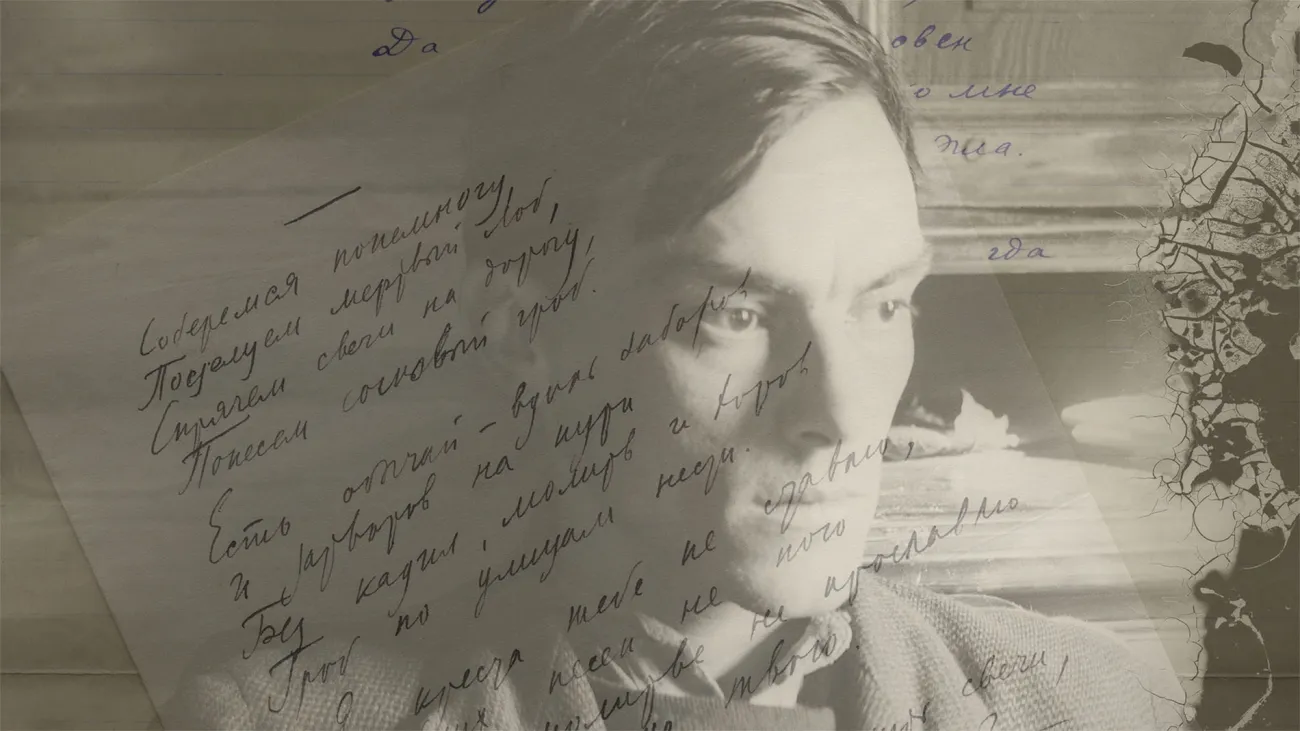 Да овен
о мне
гда
Соберемся понемногу,
Поцелуем мертвый лоб,
Спрячем свечи на дорогу,
Понесем сосновый гроб.
Есть обычай – вдоль заборов
И затворов на пути
Без кадил, молитв и хоров
Гроб по улицам нести.
Я креста тебе не ставлю,
их песен не пою
молитве не прославлю
твою.
свечи,